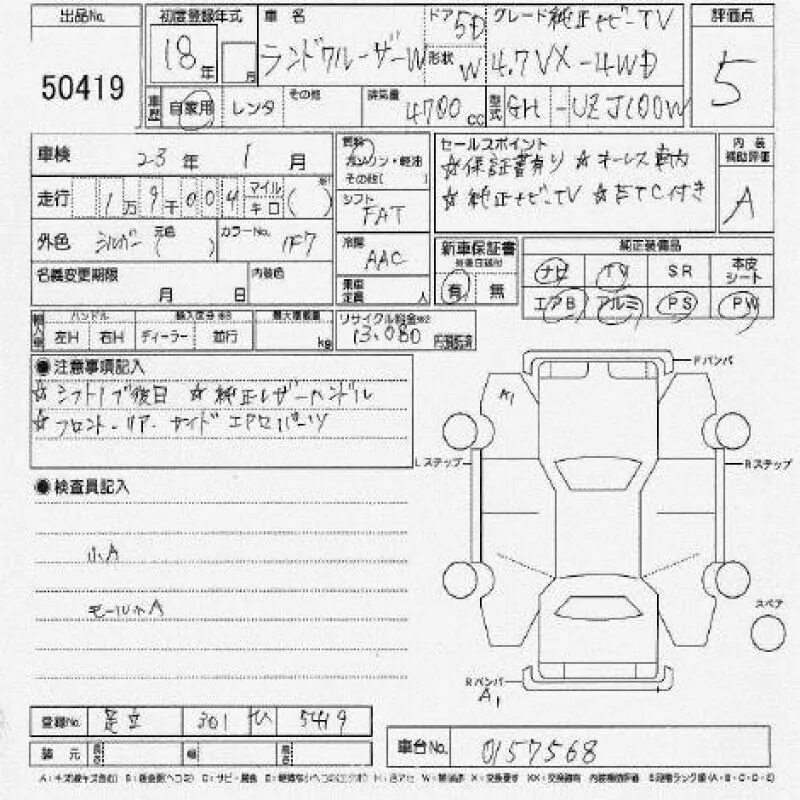 出品No.
50419
初度登録年式
18年 月
車名
ランドクルーザーW
ドア 5D
形状 W
グレード 純正ナビーTV
4.7VX-4WD
評価点
5
車歴 自家用 レンタ その他
排気量 4700cc
型式 GH-UZJ100W
車検 23年 1月
走行 1万9千004 マイル キロ ( )
外色 シルバー 元色 ( ) カラーNo. 1F7
名義変更期限 月 日 内装色
燃料 ガソリン・軽油
その他( )
シフト
FAT
冷房
AAC
乗車定員 人
セールスポイント
☆保証書有り ☆オーレス車内
☆純正ナビーTV ☆ETC付き
内装補助評価
A
新車保証書
有 無
純正装備品
ナビ TV SR 本皮シート
エアB アルミ PS PW
輸入車 ハンドル 左H 右H ディーラー 並行
最大積載量 kg
リサイクル料金
13,080
●注意事項記入
☆シフトノブ後日 ☆純正レザーハンドル
☆フロント・リア・サイドエアロパーツ
●検査員記入
小A
モール小A
Fバンパ
A1
Lステップ
Rステップ
スペア
Rバンパ
A1
登録No. 足立 301 ひ 5419
車台No. 0157568
諸元 長さ 幅 高さ